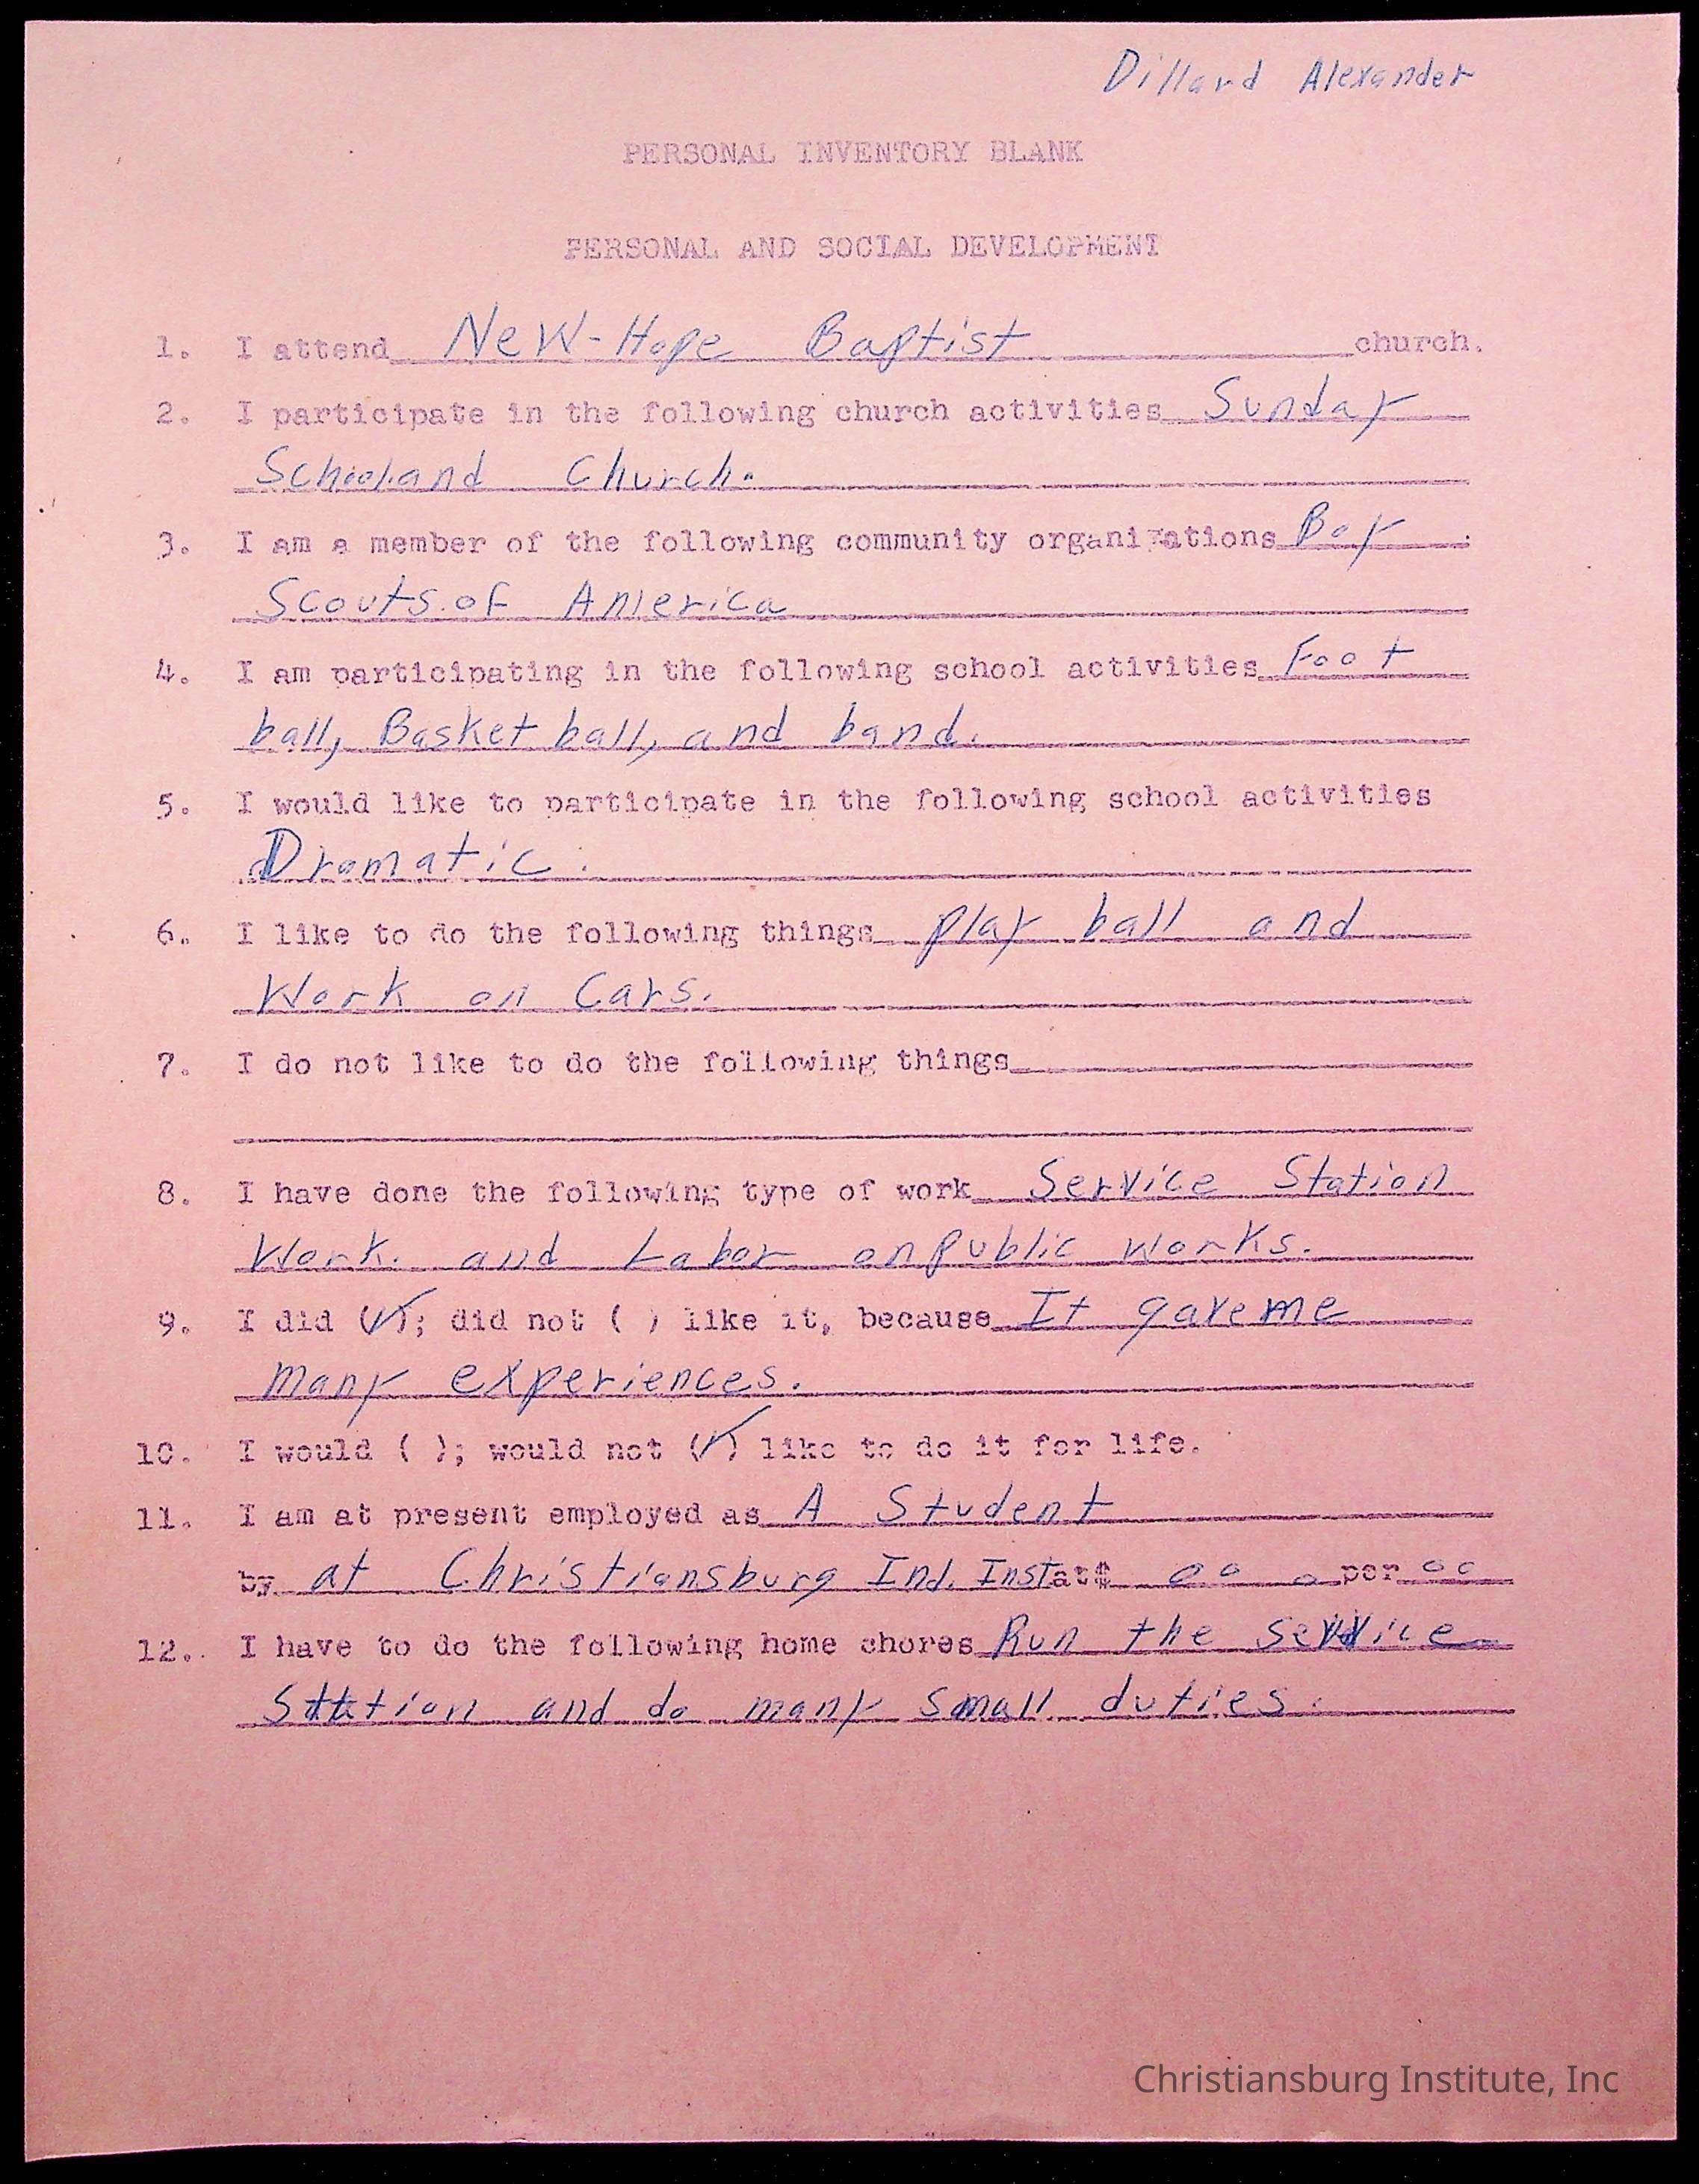 Dillard Alexander
PERSONAL INVENTORY BLANK
PERSONAL AND SOCIAL DEVELOPMENT
1. I attend New-Hope Baptist church.
2. I participate in the following church activities Sunday
School and Church.
3. I am a member of the following community organizations Boy
Scouts of America
4. I am participating in the following school activities Foot
ball, Basket ball, and band.
5. I would like to participate in the following school activities
Dramatic.
6. I like to do the following things play ball and
Work on Cars.
7. I do not like to do the following things
8. I have done the following type of work Service Station
Work. and Labor on Public Works.
9. I did (✓); did not ( ) like it, because It gave me
many experiences.
10. I would ( ); would not (✓) like to do it for life.
11. I am at present employed as A Student
by at Christiansburg Ind. Inst at $ oo o per oo
12. I have to do the following home chores Run the service
Station and do many small duties.
Christiansburg Institute, Inc